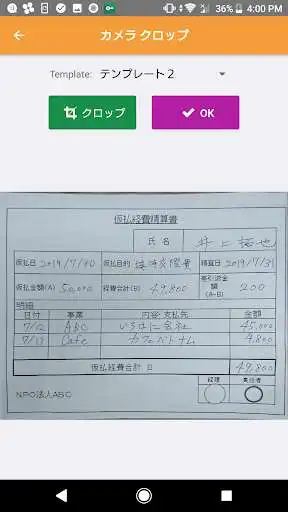 36% 4:00 PM
カメラ クロップ
Template: テンプレート2
クロップ
OK
仮払経費精算書
氏 名 井上 拓也
仮払日 2019/7/10 仮払目的 接待交際費 精算日 2019/7/31
仮払金額(A) 50,000 経費合計(B) 49,800 差引返金額(A-B) 200
明細
日付 事業 内容・支払先 金額
7/12 ABC いろはに会社 45,000
7/13 Cafe カフェベトナム 4,800
仮払経費合計 B 49,800
経理 責任者
NPO法人ABC